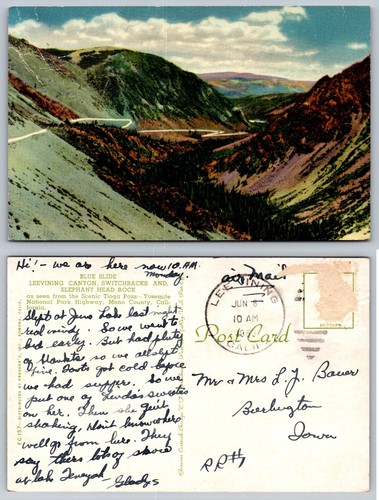 Hi! - we are here now 10 A.M.
Monday
Air Mail
BLUE SLIDE
LEEVINING CANYON, SWITCHBACKS AND,
ELEPHANT HEAD ROCK
as seen from the Scenic Tioga Pass—Yosemite
National Park Highway, Mono County, Cali-
LEEVINING
JUN 8
10 AM
CALIF.
Post Card
Slept at June Lake last night
real windy. So we went to
bed early. But had plenty
of blankets so we all slept
fine. Toots got cold before
we had supper. So we
put one of Linda's sweaters
on her. Then she quit
shaking. Don't know where
we'll go from here. They
say there's lots of snow
at Lake Tenayah - Gladys
Mr & Mrs L. J. Bauer
Burlington
Iowa
RR #1